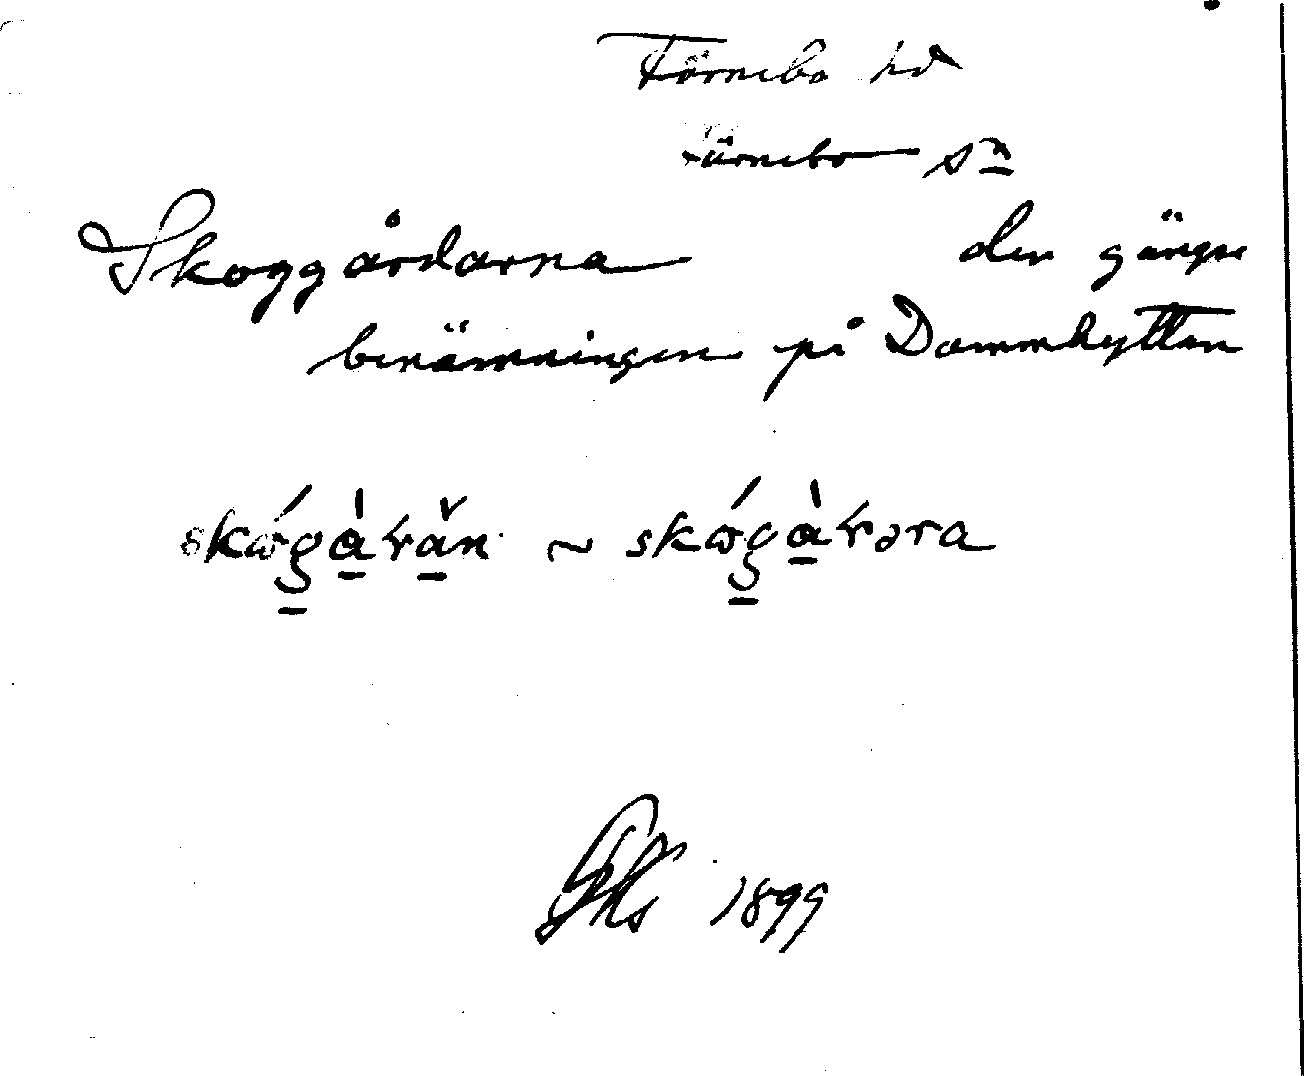 Färnebo hd
Färnebo sn
Skoggårdarna den gängse
benämningen på Dammhyttan
skógàrăn ~ skógàrəra
1899